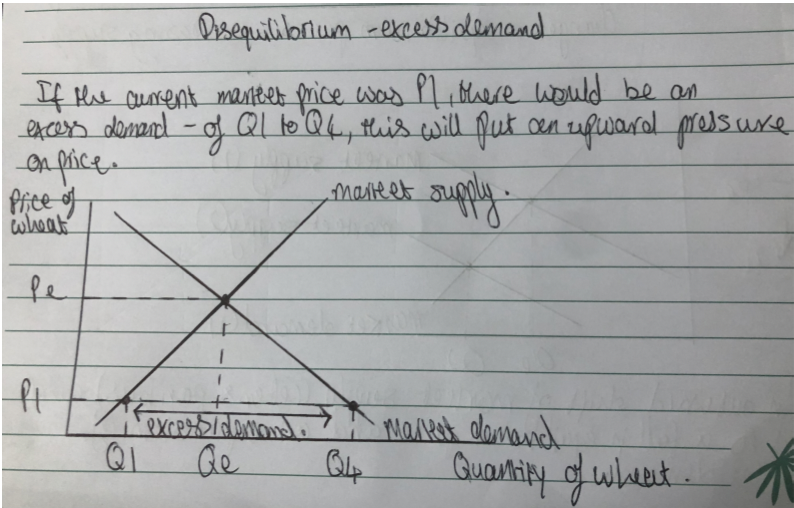 Disequilibrium - excess demand
If the current market price was P1, there would be an
excess demand - of Q1 to Q4, this will put an upward pressure
on price.
Price of
wheat
market supply.
Pe
P1
excess demand.
market demand
Q1
Qe
Q4
Quantity of wheat.